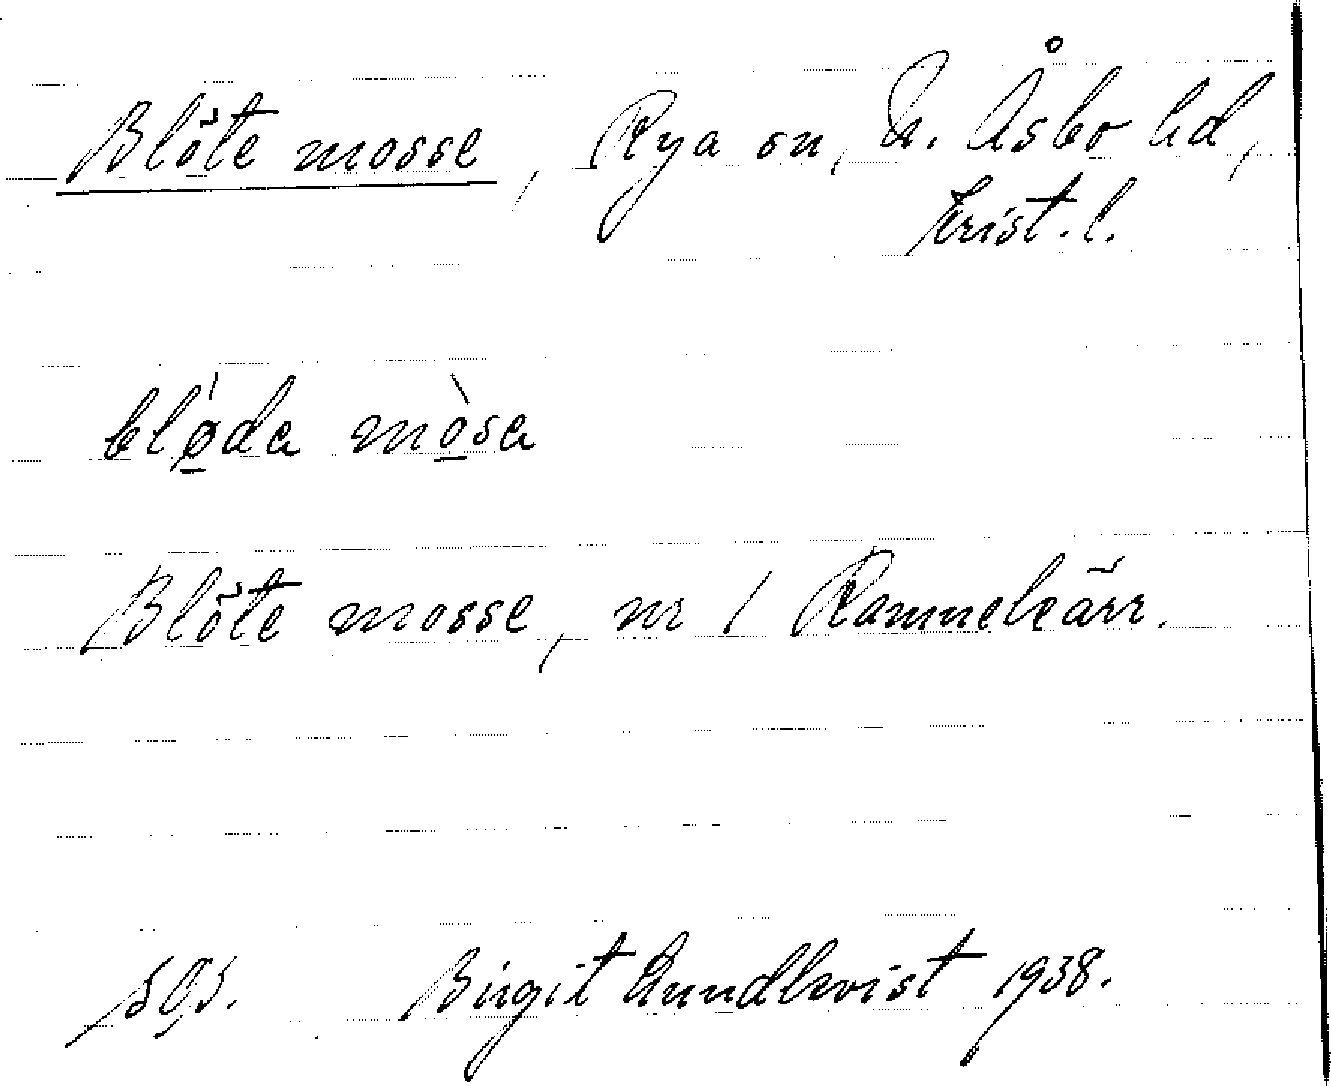 Blöte mosse, Rya sn, N. Åsbo hd,
Krist. l.
blǿ̱da mò̱sa
Blöte mosse, nr 1 Rammekärr.
SOS. Birgit Lundkvist 1938.